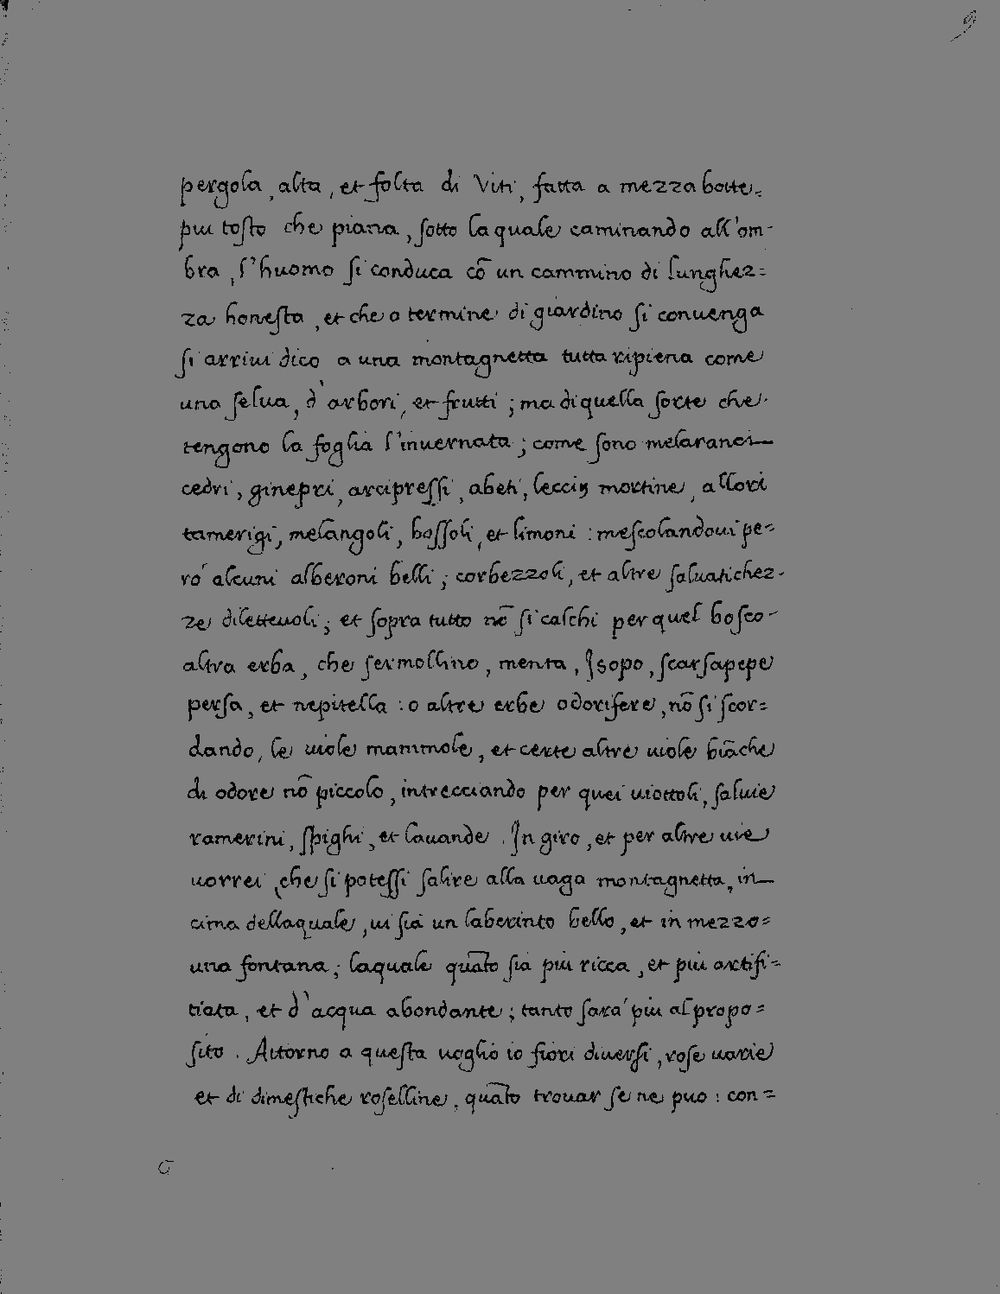 9
pergola, alta, et folta di Viti, fatta a mezza botte,
piu tosto che piana, sotto la quale caminando all'om-
bra, l'huomo si conduca cõ un cammino di lunghez=
za honesta, et che a termine di giardino si conuenga
si arriui dico a una montagnetta tutta ripiena come
una selua, d'arbori, et frutti; ma di quella sorte che
tengono la foglia l'inuernata; come sono melaranci
cedri, ginepri, arcipressi, abeti, leccij mortine, allori
tamerigi, melangoli, bossoli, et limoni: mescolandoui pe=
ro alcuni alberoni belli; corbezzoli, et altre saluatichez-
ze diletteuoli; et sopra tutto nõ si calchi per quel bosco
altra erba, che sermollino, menta, Isopo, scarsapepe
persa, et nepitella: o altre erbe odorifere, nõ si scor=
dando, le uiole mammole, et certe altre uiole biãche
di odore nõ piccolo, intrecciando per quei uiottoli, saluie
ramerini, spighi, et lauande. In giro, et per altre uie
uorrei, che si potessi salire alla uaga montagnetta, in
cima dellaquale, ui sia un laberinto bello, et in mezzo=
una fontana; laquale quãto sia piu ricca, et piu artifi=
tiata, et d'acqua abondante; tanto sara piu al propo=
sito. Attorno a questa uoglio io fiori diuersi, rose uarie
et di dimestiche roselline, quãto trouar se ne puo: con=